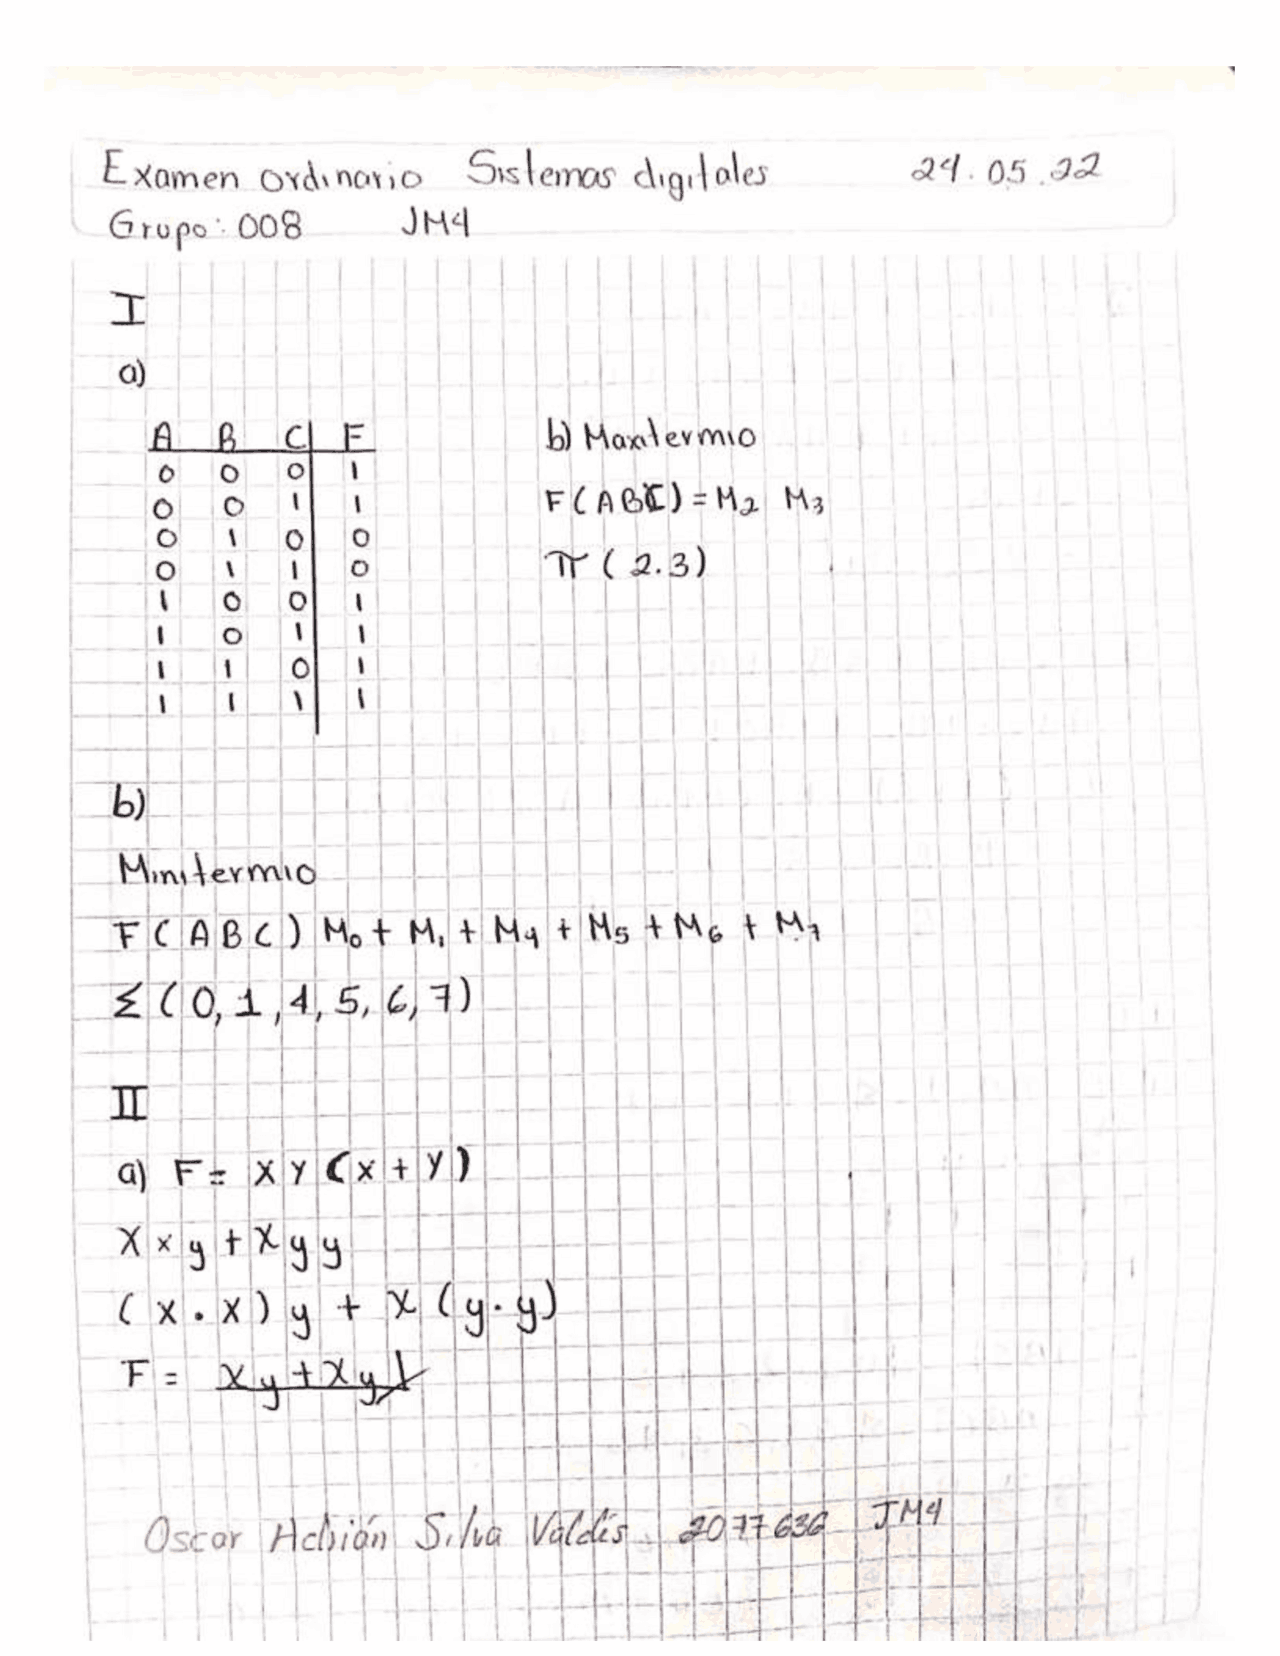 Examen ordinario Sistemas digitales 24.05.22
Grupo: 008 JM4
I
a)
A B C F
0 0 0 1
0 0 1 1
0 1 0 0
0 1 1 0
1 0 0 1
1 0 1 1
1 1 0 1
1 1 1 1
b) Maxitermio
F(ABC) = M2 M3
π (2.3)
b)
Minitermio
F(ABC) M0 + M1 + M4 + M5 + M6 + M7
Σ (0,1,4,5,6,7)
II
a) F = XY (x + y)
X x y + X y y
(x . x) y + x (y . y)
F = Xy + Xy
Oscar Adrián Silva Valdés 2077636 JM4